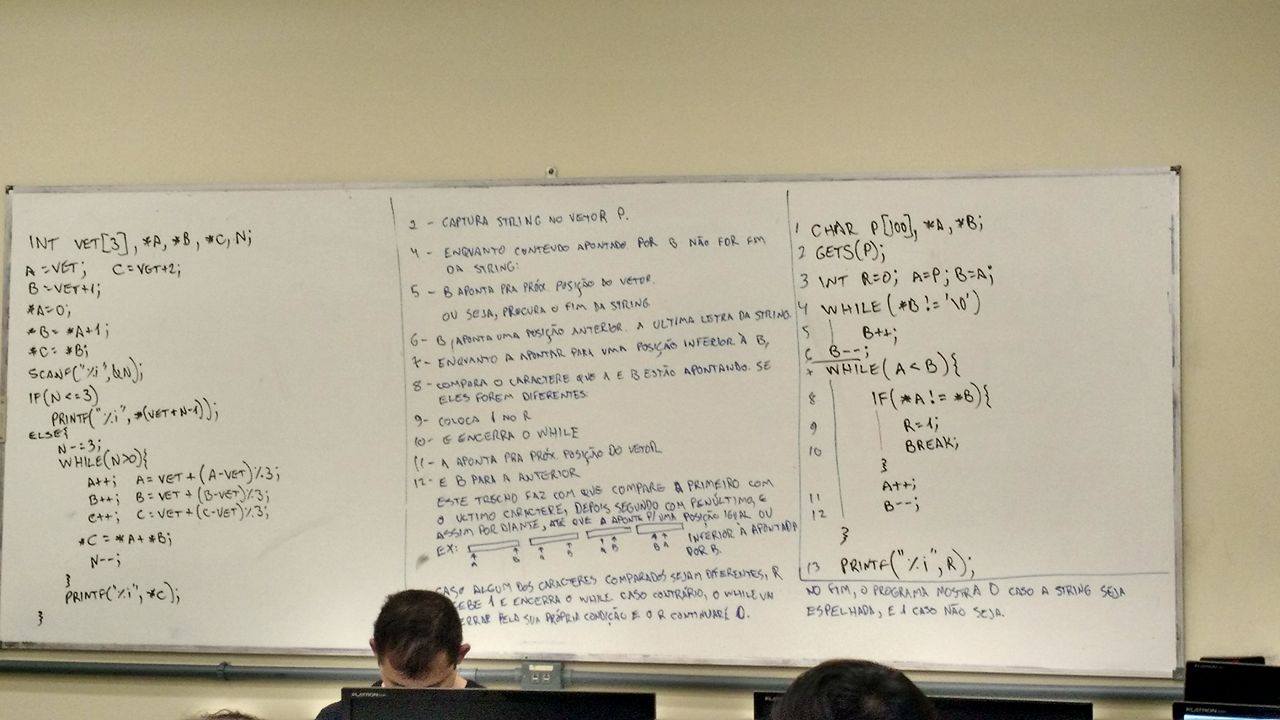 INT VET[3], *A, *B, *C, N;
A = VET; C = VET+2;
B = VET+1;
*A=0;
*B = *A+1;
*C = *B;
SCANF("%i",&N);
IF(N<=3)
PRINTF("%i", *(VET+N-1));
ELSE{
N-=3;
WHILE(N>0){
A++; A = VET + (A-VET)%3;
B++; B = VET + (B-VET)%3;
C++; C = VET + (C-VET)%3;
*C = *A + *B;
N--;
}
PRINTF("%i", *C);
}
2 - CAPTURA STRING NO VETOR P.
4 - ENQUANTO CONTEUDO APONTADO POR B NÃO FOR FIM
DA STRING:
5 - B APONTA PRA PRÓX. POSIÇÃO DO VETOR.
OU SEJA, PROCURA O FIM DA STRING
6 - B APONTA UMA POSIÇÃO ANTERIOR. A ULTIMA LETRA DA STRING.
7 - ENQUANTO A APONTAR PARA UMA POSIÇÃO INFERIOR À B,
8 - COMPARA O CARACTERE QUE A E B ESTÃO APONTANDO. SE
ELES FOREM DIFERENTES:
9 - COLOCA 1 NO R
10 - E ENCERRA O WHILE
11 - A APONTA PRA PRÓX. POSIÇÃO DO VETOR
12 - E B PARA A ANTERIOR
ESTE TRECHO FAZ COM QUE COMPARE O PRIMEIRO COM
O ULTIMO CARACTERE, DEPOIS SEGUNDO COM PENÚLTIMO, E
ASSIM POR DIANTE, ATÉ QUE A APONTE P/ UMA POSIÇÃO IGUAL OU
INFERIOR À APONTADA
POR B.
EX:
A B A B A B B A
CASO ALGUM DOS CARACTERES COMPARADOS SEJAM DIFERENTES, R
1 E ENCERRA O WHILE CASO CONTRÁRIO, O WHILE VAI
PELA SUA PRÓPRIA CONDIÇÃO E O R CONTINUARÁ 0.
1 CHAR P[100], *A, *B;
2 GETS(P);
3 INT R=0; A=P; B=A;
4 WHILE(*B != '\0')
5 B++;
6 B--;
7 WHILE(A < B){
8 IF(*A != *B){
9 R=1;
10 BREAK;
}
11 A++;
12 B--;
}
13 PRINTF("%i", R);
NO FIM, O PROGRAMA MOSTRA 0 CASO A STRING SEJA
ESPELHADA, E 1 CASO NÃO SEJA.
FLATRON
FLATRON
FLATRON
FLATRON